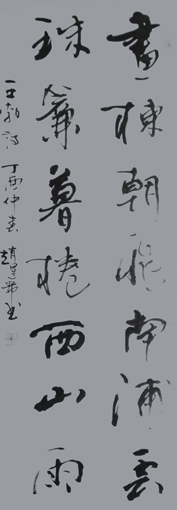 畫棟朝飛南浦雲
珠簾暮捲西山雨
王勃詩 丁酉仲春 趙